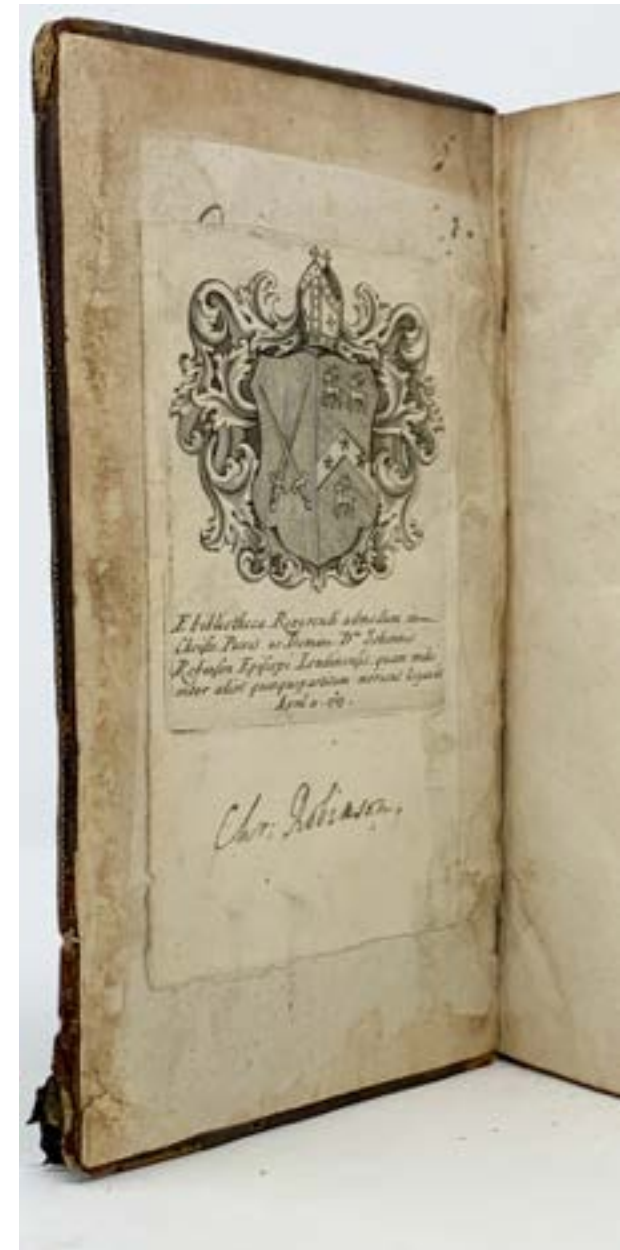 E bibliotheca Reverendi admodum in
Christo Patris ac Domini Dni Johannis
Robinson Episcopi Londinensis, quam mihi
inter alios quinquepartitam moriens legavit
April 11
Chr: Robinson.